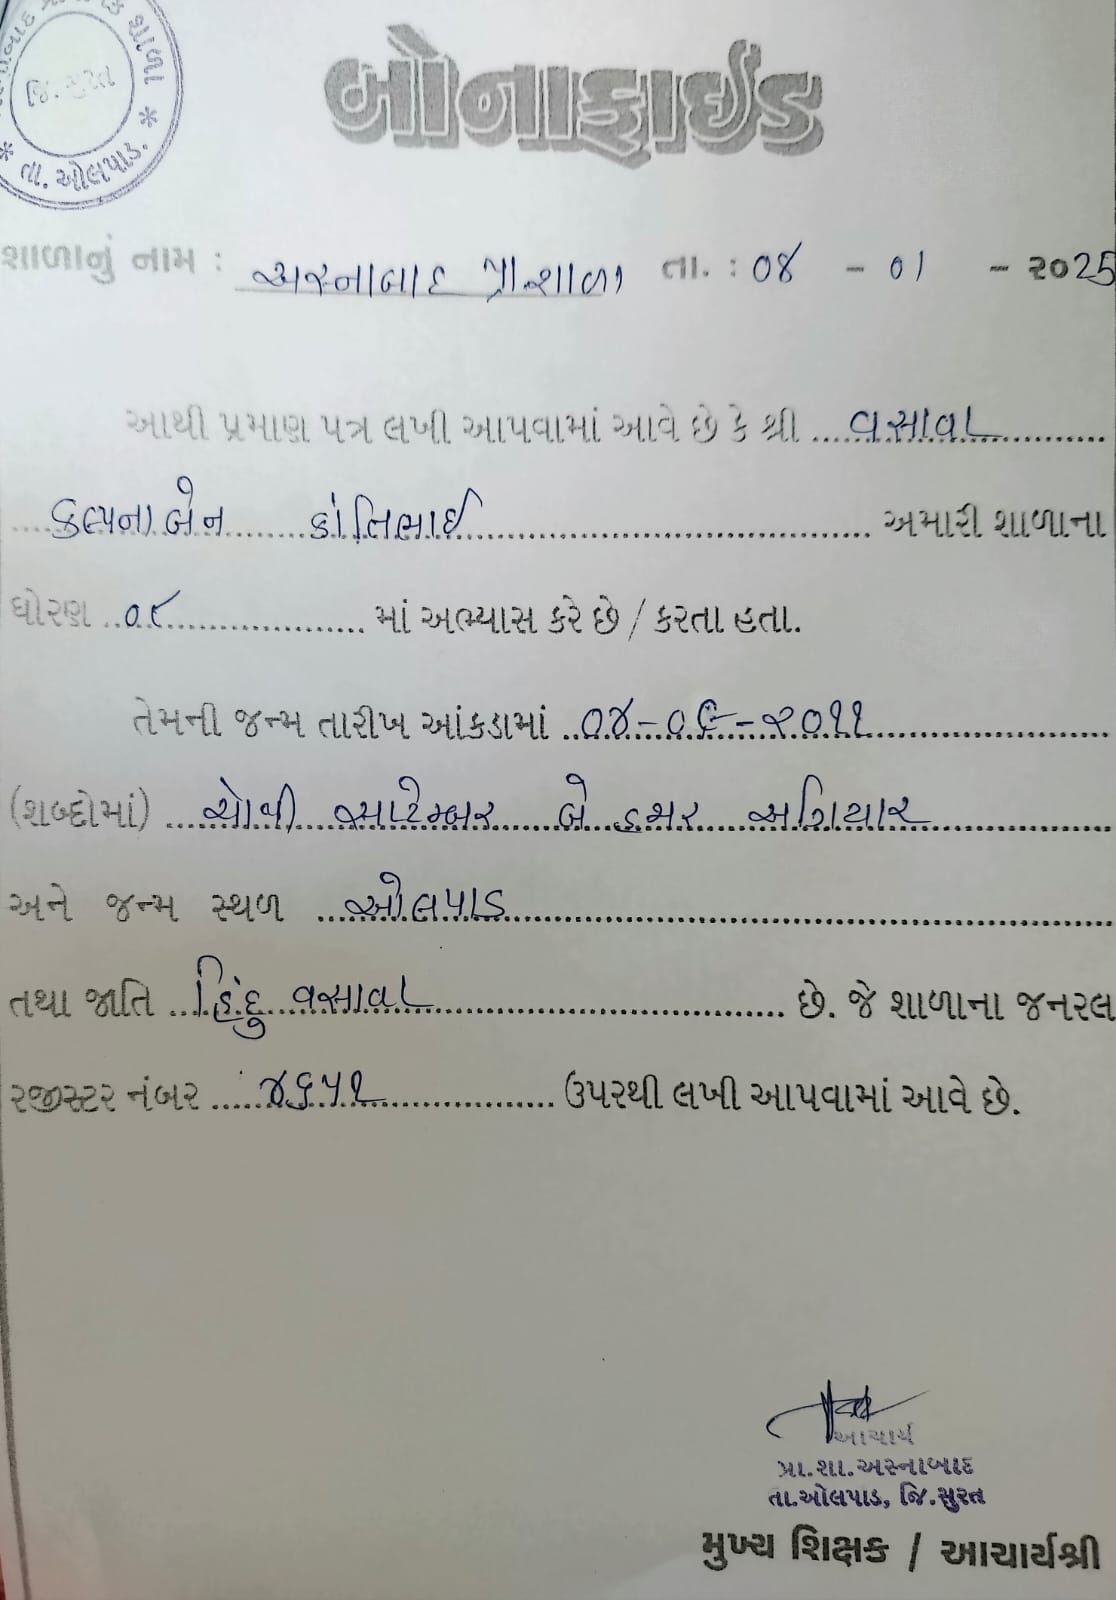 પ્રાથમિક શાળા
જિ. સુરત
* તા. ઓલપાડ. *
બોનાફાઈડ
શાળાનું નામ : અસ્નાબાદ પ્રા.શાળા તા. : ૦૪ - ૦૧ - ૨૦25
આથી પ્રમાણ પત્ર લખી આપવામાં આવે છે કે શ્રી વસાવા
કલ્પનાબેન કાંતિભાઈ અમારી શાળાના
ધોરણ ૦૮ માં અભ્યાસ કરે છે / કરતા હતા.
તેમની જન્મ તારીખ આંકડામાં ૦૪-૦૯-૨૦૧૧
(શબ્દોમાં) ચોથી સપ્ટેમ્બર બે હજાર અગિયાર
અને જન્મ સ્થળ ઓલપાડ
તથા જાતિ હિંદુ વસાવા છે. જે શાળાના જનરલ
રજીસ્ટર નંબર ૪૬૫૧ ઉપરથી લખી આપવામાં આવે છે.
આચાર્ય
પ્રા.શા.અસ્નાબાદ
તા.ઓલપાડ, જિ.સુરત
મુખ્ય શિક્ષક / આચાર્યશ્રી